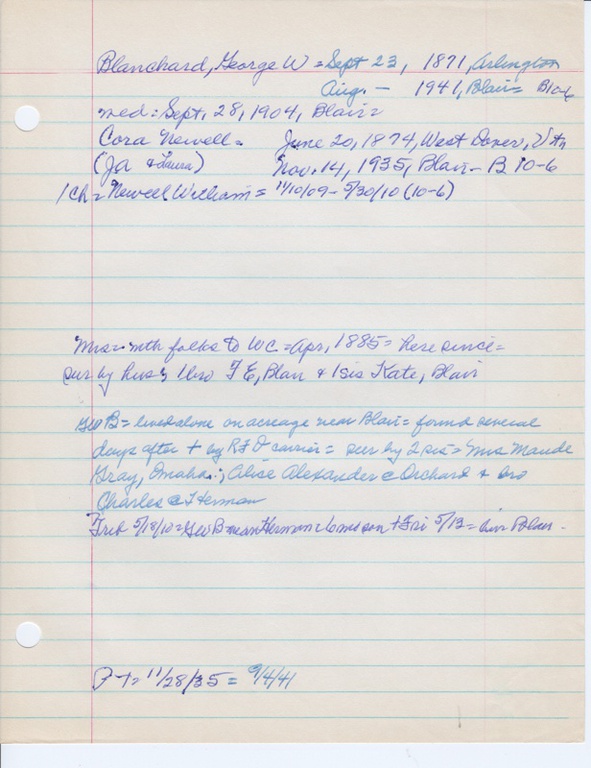 Blanchard, George W = Sept 23, 1871, Arlington
Aug. - 1941, Blair = B10-6
med = Sept. 28, 1904, Blair =
Cora Newell = June 20, 1874, West Dover, Vtn
(Ja & Laura) Nov. 14, 1935, Blair - B 10-6
1 Ch = Newell William = 11/10/09 - 5/30/10 (10-6)
Mrs = with folks to WC = Apr, 1885 = here since =
sur by hus; 1 bro F E, Blair & 1 sis Kate, Blair
Geo B = lived alone on acreage near Blair = found several
days after + by RFD carrier = sur by 2 sis = Mrs Maude
Gray, Omaha; Alice Alexander @ Orchard & bro
Charles @ Herman
Trib 5/18/10 = Geo B = near Herman 6 mo son + Fri 5/13 = Blair -
P-T = 11/28/35 = 9/4/41